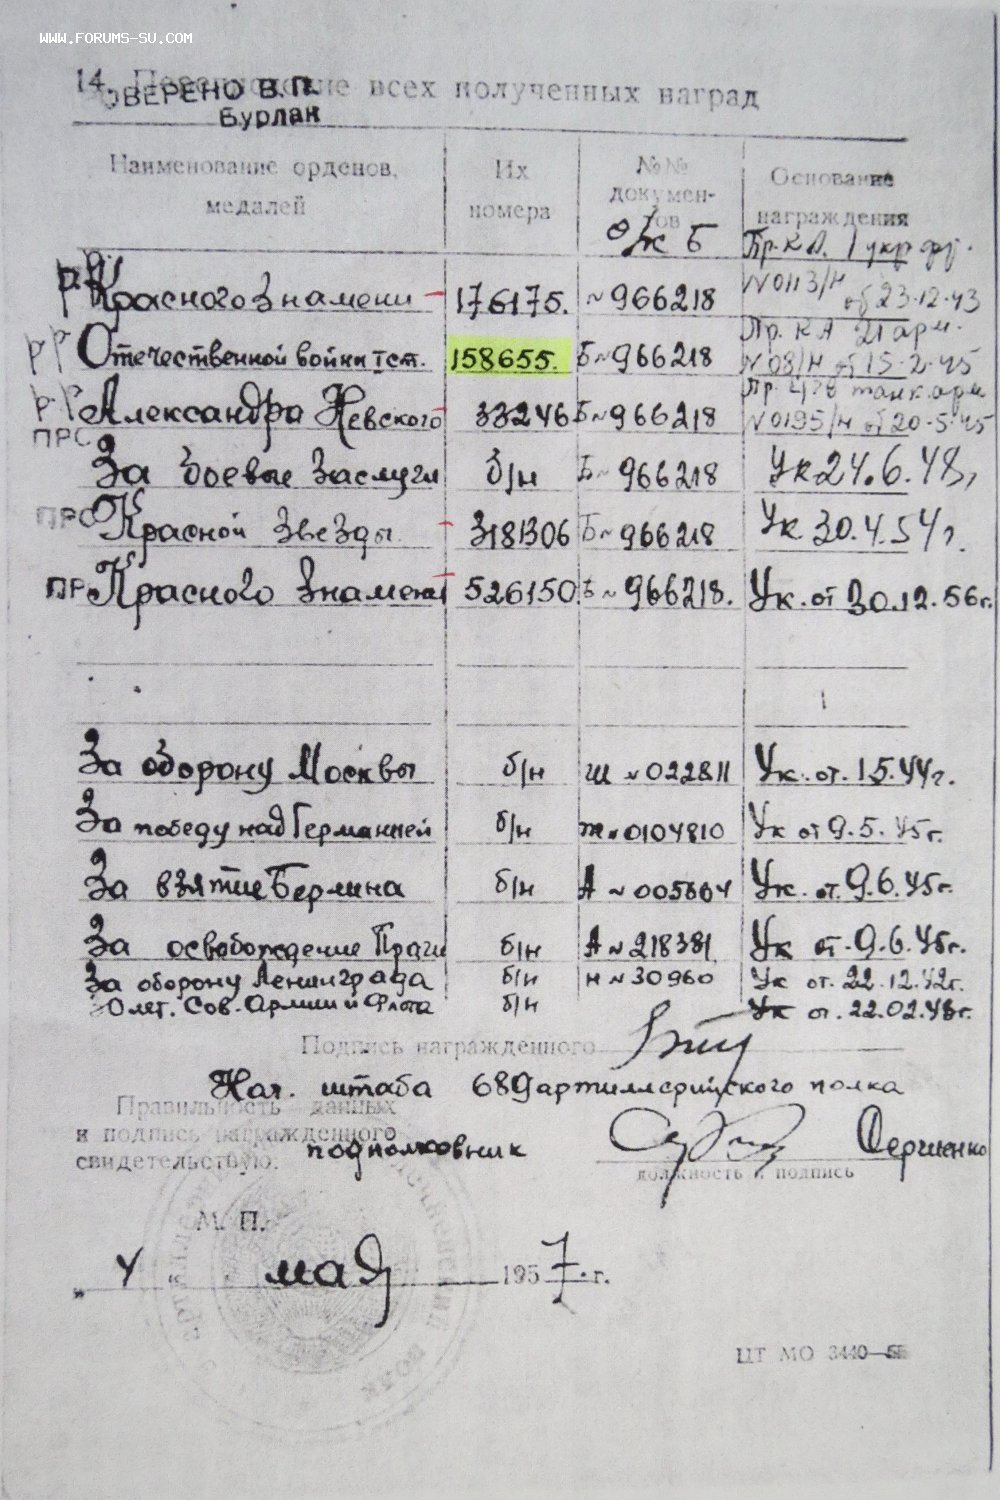 WWW.FORUMS-SU.COM
14. всех полученных наград
ОВЕРЕНО В.П.
Бурлак
Наименование орденов, медалей
Их номера
№№ докумен-тов
Основание награждения
о/к Б
Пр. К А. 1 укр. фр.
Красного Знамени 176175. № 966218 N0113/н от 23.12.43
Пр. К А 21 арм.
Отечественной войны I ст. 158655. Б № 966218 N08/н от 15.2.45
Пр. 4 гв танк. арм
Александра Невского 33246 Б № 966218 N0195/н от 20.5.45
ПРС
За боевые заслуги б/н Б № 966218 Ук 24.6.48г
ПРС Красной Звезды 3181306 Б № 966218 Ук 30.4.54г.
ПР Красного Знамени 526150. Б № 966218. Ук. от 30.12.56г.
За оборону Москвы б/н Ш № 022811 Ук. от. 1.5.44г.
За победу над Германией б/н Ж № 0104810 Ук от 9.5.45г.
За взятие Берлина б/н А № 005604 Ук. от. 9.6.45г.
За освобождение Праги б/н А № 218381 Ук от. 9.6.45г.
За оборону Ленинграда б/н Н № 30960 Ук от. 22.12.42г.
30 лет. Сов. Армии и Флота б/н Ук от. 22.02.48г.
Подпись награжденного
Нач. штаба 689 артиллерийского полка
Правильность данных
и подпись награжденного
свидетельствую: подполковник Сергиенко
должность и подпись
М. П.
„ 4 “ мая 1957. г.
ЦТ МО 3440—55